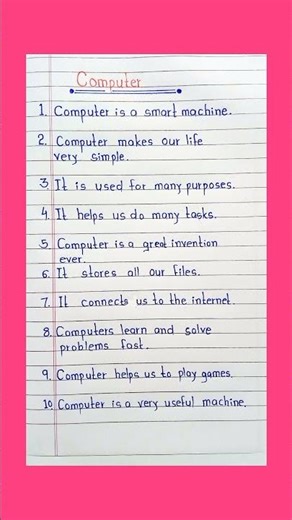 Computer
1. Computer is a smart machine.
2. Computer makes our life
very simple.
3. It is used for many purposes.
4. It helps us do many tasks.
5. Computer is a great invention
ever.
6. It stores all our files.
7. It connects us to the internet.
8. Computers learn and solve
problems fast.
9. Computer helps us to play games.
10. Computer is a very useful machine.